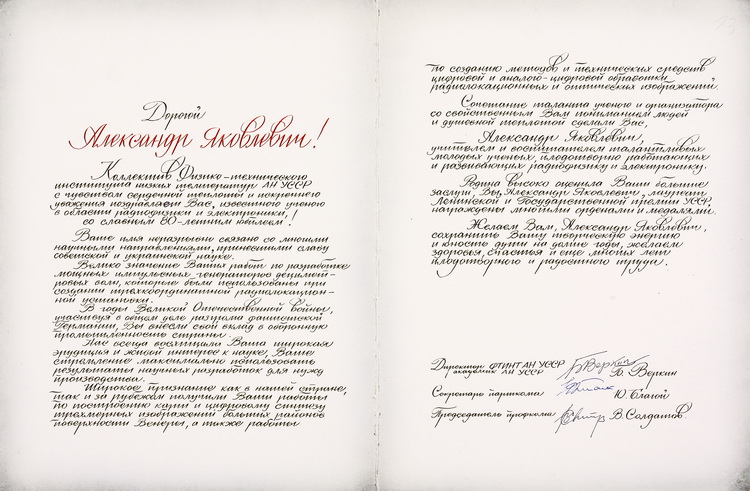 Дорогой
Александр Яковлевич!
Коллектив Физико-технического
института низких температур АН УССР
с чувством сердечной теплоты и искреннего
уважения поздравляет Вас, известного ученого
в области радиофизики и электроники,
со славным 80-летним юбилеем!
Ваше имя неразрывно связано со многими
научными направлениями, принесшими славу
советской и украинской науке.
Велико значение Ваших работ по разработке
мощных импульсных генераторов дециметро-
ровых волн, которые были использованы при
создании трехкоординатной радиолокацион-
ной установки.
В годы Великой Отечественной войны,
участвуя в общем деле разгрома фашистской
Германии, Вы внесли свой вклад в оборонную
промышленность страны.
Нас всегда восхищали Ваша широкая
эрудиция и живой интерес к науке, Ваше
стремление максимально использовать
результаты научных разработок для нужд
производства.
Широкое признание как в нашей стране,
так и за рубежом получили Ваши работы
по построению карт и цифровому синтезу
трехмерных изображений больших районов
поверхности Венеры, а также работы
по созданию методов и технических средств
цифровой и аналого-цифровой обработки
радиолокационных и оптических изображений.
Сочетание таланта ученого и организатора
со свойственным Вам пониманием людей
и душевной теплотой сделали Вас,
Александр Яковлевич,
учителем и воспитателем талантливых
молодых ученых, плодотворно работающих
и развивающих радиофизику и электронику.
Родина высоко оценила Ваши большие
заслуги, Вы, Александр Яковлевич, лауреат
Ленинской и Государственной премии УССР,
награждены многими орденами и медалями.
Желаем Вам, Александр Яковлевич,
сохранить Вашу творческую энергию
и юность души на долгие годы, желаем
здоровья, счастья и еще многих лет
плодотворного и радостного труда.
Директор ФТИНТ АН УССР
академик АН УССР Б. Веркин
Секретарь парткома Ю. Благой
Председатель профкома В. Солдатов